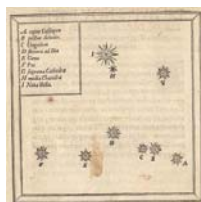 A caput Cassiopeæ
B pectus Schedir
C Cingulum
D flexura ad Ilia
E Genu
F Pes
G suprema Cathedræ
H media Chatedræ
I Nova stella
I
H
G
D
A